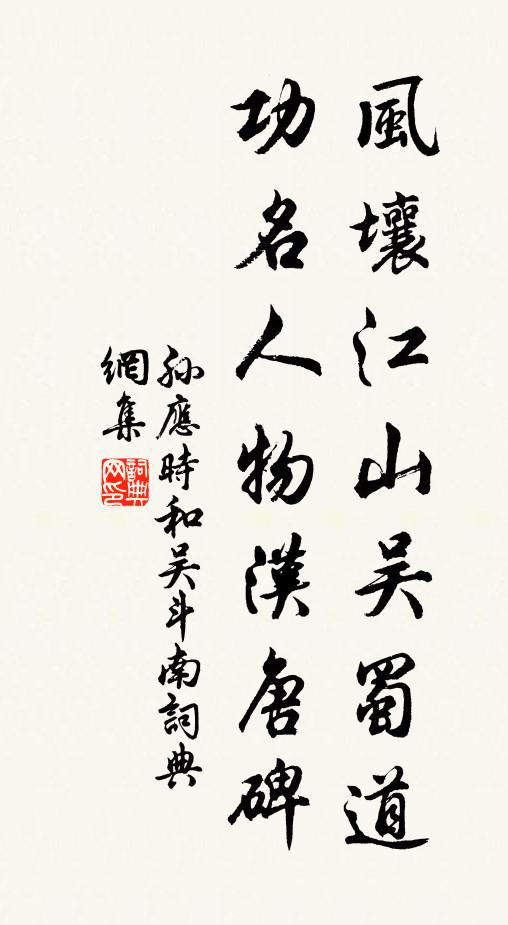 風壤江山吴蜀道
功名人物漢唐碑
孫應時和吴斗南詞典
網集
詞典
网印